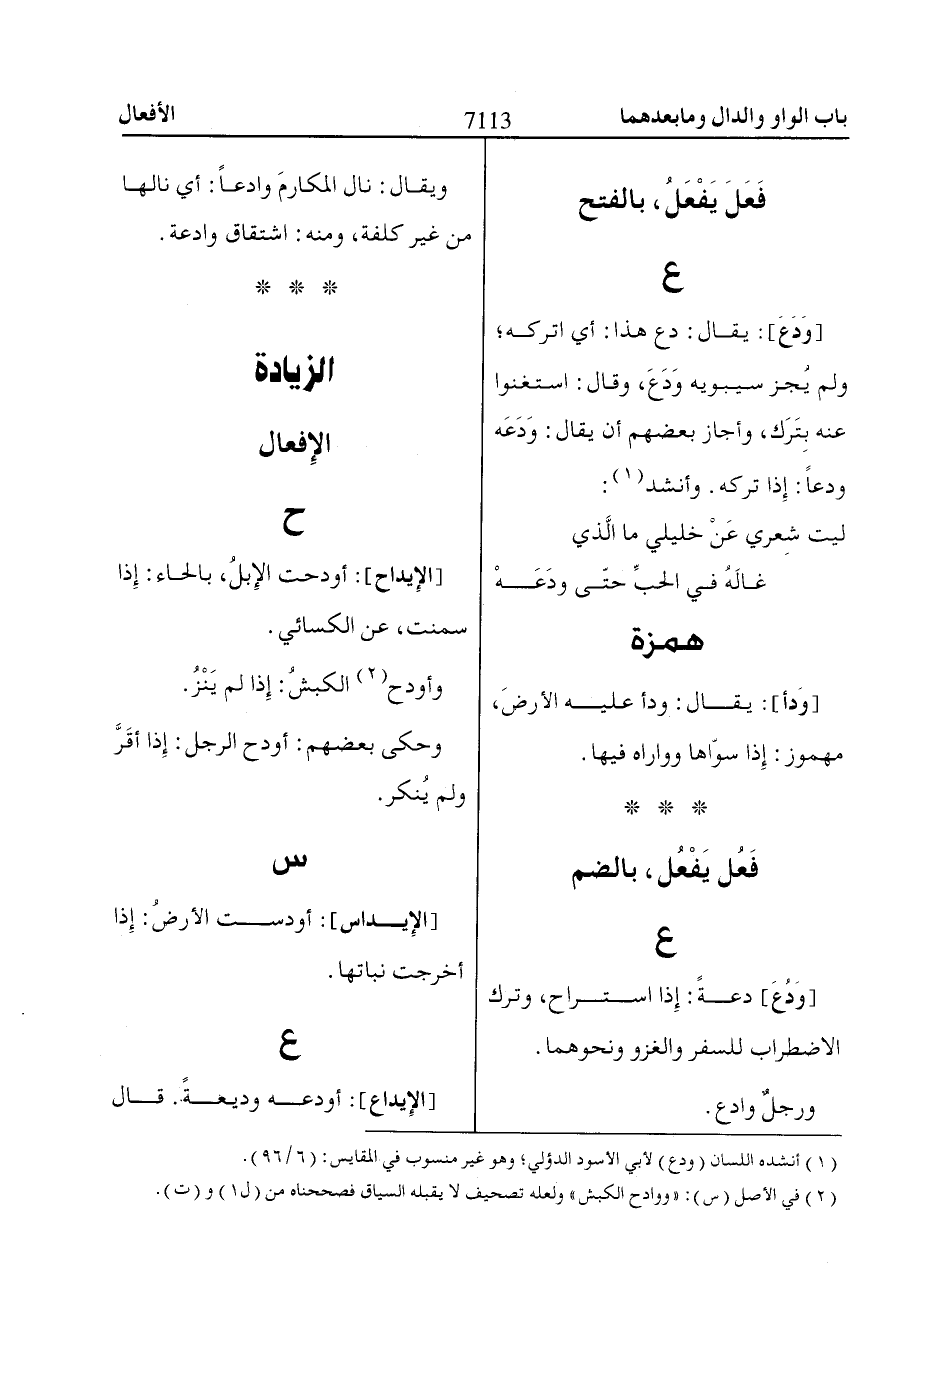 باب الواو والدال ومابعدهما
7113
الأفعال
فَعَلَ يَفْعَلُ، بالفتح
ع
[وَدَعَ]: يقال: دع هذا: أي اتركه؛
ولم يُجز سيبويه وَدَعَ، وقال: استغنوا
عنه بِتَرَك، وأجاز بعضهم أن يقال: وَدَعَه
ودعاً: إذا تركه. وأنشد(١):
ليت شعري عَنْ خليلي ما الَّذي
غالَهُ في الحبِّ حتّى ودَعَهْ
همزة
[وَدأ]: يقال: ودأ عليه الأرضَ،
مهموز: إذا سوّاها وواراه فيها.
* * *
فَعُل يَفْعُل، بالضم
ع
[وَدُعَ] دعةً: إذا استراح، وترك
الاضطراب للسفر والغزو ونحوهما.
ورجلٌ وادع.
ويقال: نال المكارمَ وادعاً: أي نالها
من غير كلفة، ومنه: اشتقاق وادعة.
* * *
الزيادة
الإفعال
ح
[الإيداح]: أودحت الإبلُ، بالحاء: إذا
سمنت، عن الكسائي.
وأودح(٢) الكبشُ: إذا لم يَنْزُ.
وحكى بعضهم: أودح الرجل: إذا أقَرَّ
ولم يُنكر.
س
[الإيداس]: أودست الأرضُ: إذا
أخرجت نباتها.
ع
[الإيداع]: أودعه وديعةً. قال
(١) أنشده اللسان (ودع) لأبي الأسود الدؤلي؛ وهو غير منسوب في المقايس: (٩٦/٦).
(٢) في الأصل (س): «ووادح الكبش» ولعله تصحيف لا يقبله السياق فصححناه من (ل١) و(ت).